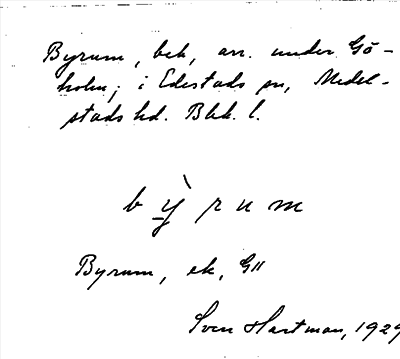 Byrum, beh, arr. under Gö-
holm; i Edestads sn, Medel-
stads hd. Blek. l.
b ỳ̠ r u m
Byrum, ek, G11
Sven Hartman, 1929